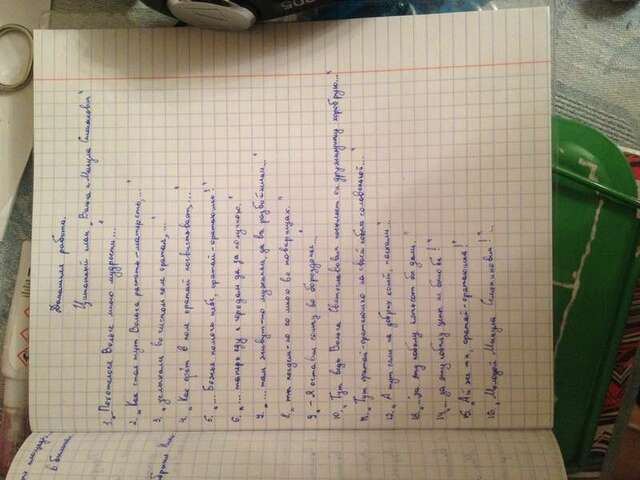 Домашняя работа.
Цитатный план „Вольга и Микула Селянинович"
1. „Похотелося Вольге много мудрости..."
2. „Как стал тут Вольга растеть-матереть,..."
3. „услыхали во чистом поле оратая,..."
4. „Как орёт в поле оратай посвистывает,..."
5. „... Божья помочь тебе, оратай-оратаюшко!"
6. „... теперь еду к городам да за получкою.
7. „... там живут-то мужички да все разбойнички..."
8. „ты поедем-ко со мною во товарищах."
9. „- Я оставил сошку во бороздочке..."
10. „Тут ведь Вольга Святославович посылает он дружинушку хоробрую..."
11. „Тут оратай-оратаюшко на своей кобыле соловенькой..."
12. „А тут сели на добрых коней, поехали."
13. „... за эту кобылу пятьсот бы дали."
14. „... за эту кобылу цены не было бы!"
15. „Ай же ты, оратай-оратаюшко!"
16. „Молодой Микула Селянинович!"...